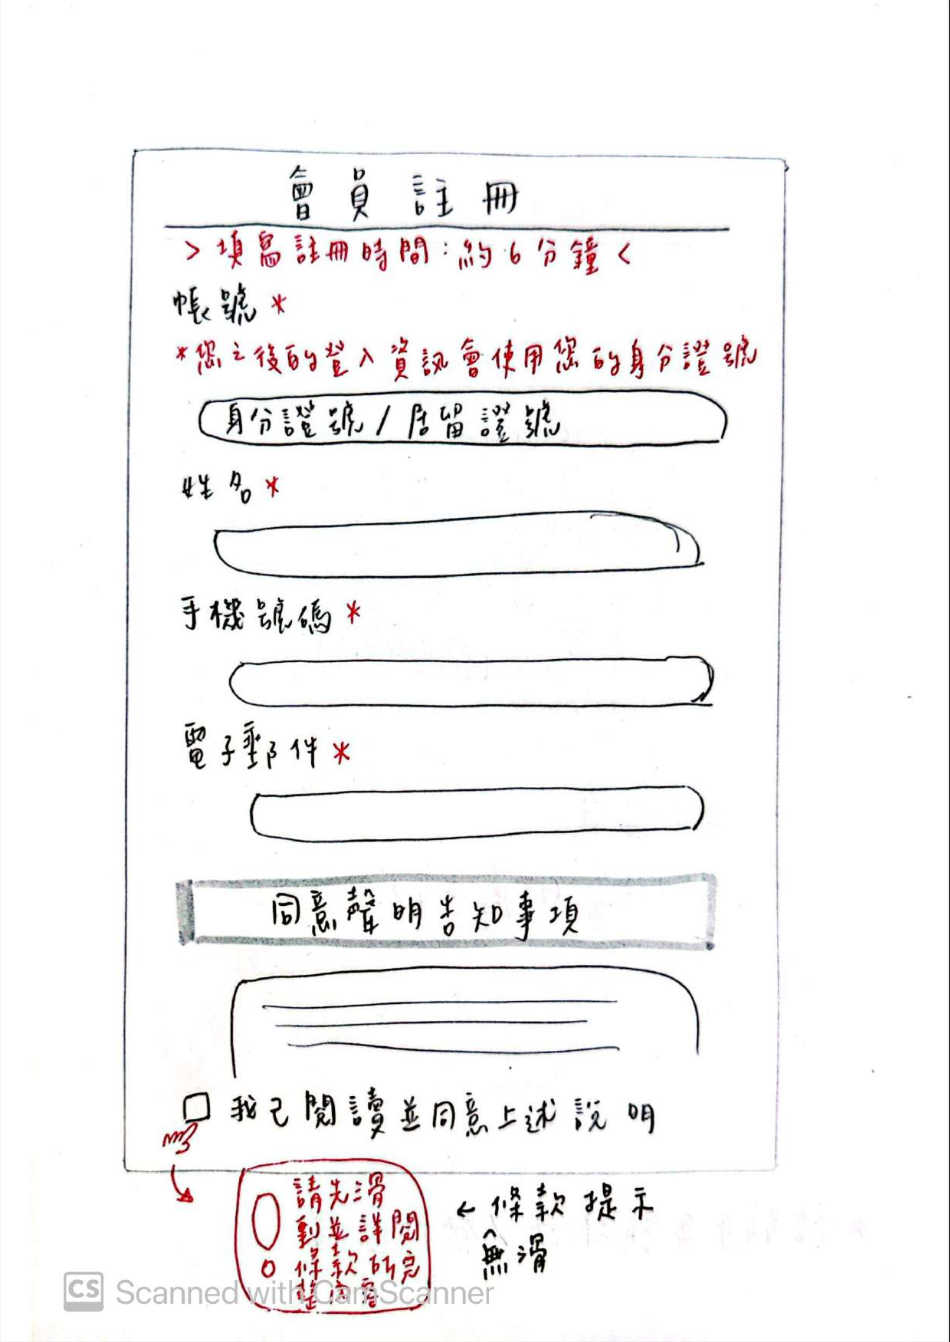 會員註冊
> 填寫註冊時間:約6分鐘 <
帳號*
*您之後的登入資訊會使用您的身分證號
身分證號/居留證號
姓名*
手機號碼*
電子郵件*
同意聲明告知事項
我已閱讀並同意上述說明
請先滑
動並詳閱
條款的完
整內容
←條款提示
無滑
CS Scanned with CamScanner